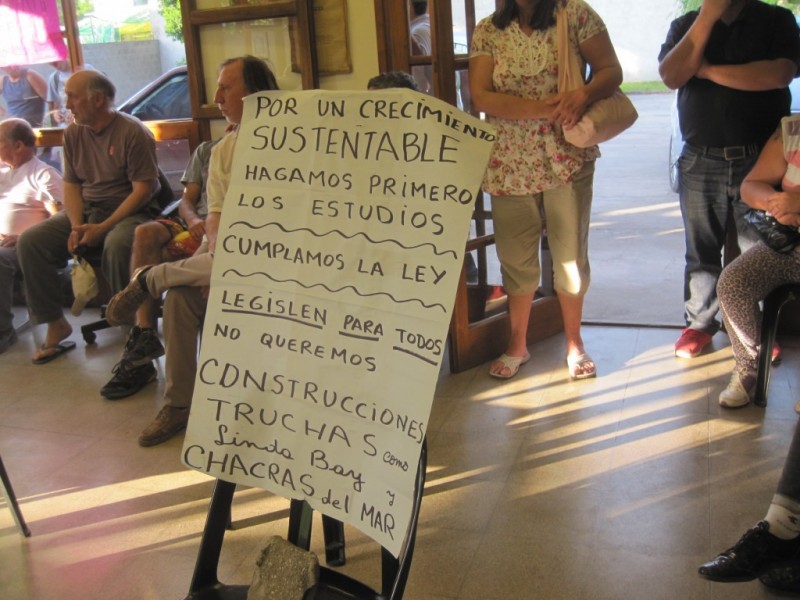 POR UN CRECIMIENTO
SUSTENTABLE
HAGAMOS PRIMERO
LOS ESTUDIOS
CUMPLAMOS LA LEY
LEGISLEN PARA TODOS
NO QUEREMOS
CONSTRUCCIONES
TRUCHAS como
Linda Bay y
CHACRAS del MAR